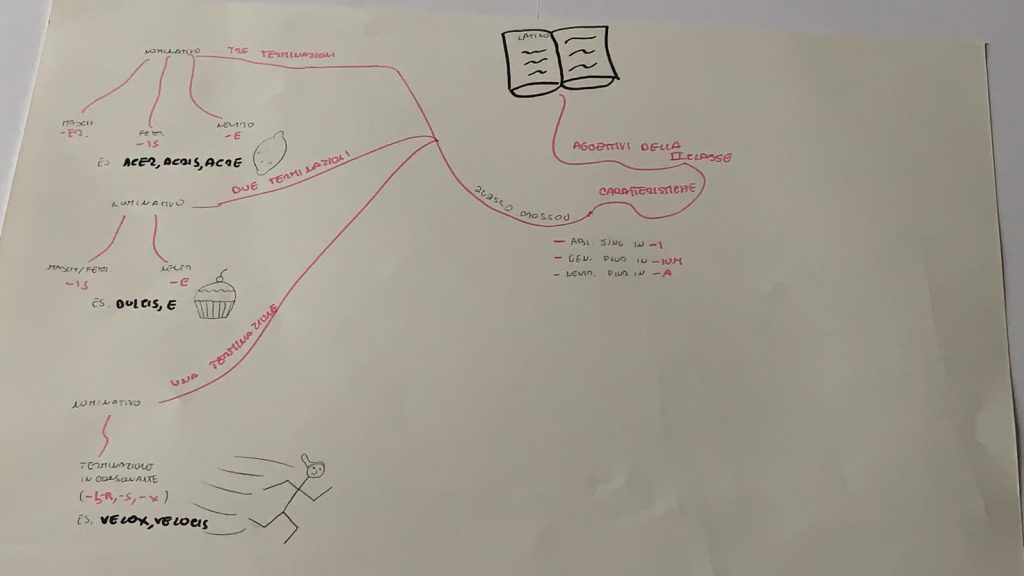 LATINO
AGGETTIVI DELLA
II CLASSE
CARATTERISTICHE
- ABL. SING IN -I
- GEN. PLUR IN -IUM
- NEUTR. PLUR IN -A
POSSONO ESSERE
TRE TERMINAZIONI
NOMINATIVO
MASCH
-ER.
FEMM.
-IS
NEUTRO
-E
ES ACER, ACRIS, ACRE
DUE TERMINAZIONI
NOMINATIVO
MASCH/FEMM
-IS
NEUTR
-E
ES. DULCIS, E
UNA TERMINAZIONE
NOMINATIVO
TERMINAZIONE
IN CONSONANTE
-R, -S, -X)
ES. VELOX, VELOCIS